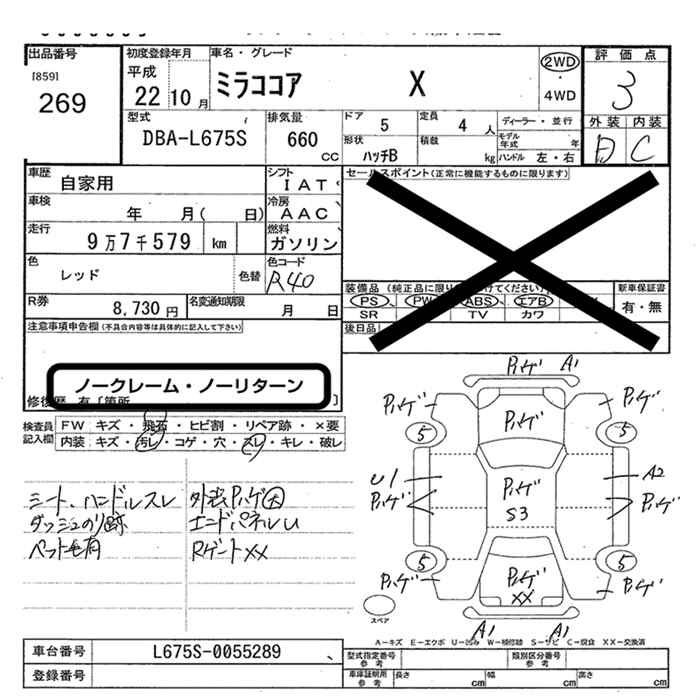 出品番号
[859]
269
初度登録年月
平成
22 10 月
車名・グレード
ミラココア X
2WD
・
4WD
評価点
3
型式
DBA-L675S
排気量
660
CC
ドア 5
定員 4 人
ディーラー・並行
形状
ハッチB
積載 kg
モデル年式 年
ハンドル 左・右
外装 内装
D C
車歴
自家用
シフト
I A T
セールスポイント(正常に機能するものに限ります)
車検
年 月( 日)
冷房
A A C
走行
9万7千579 km
燃料
ガソリン
色
レッド
色替
色コード
R40
装備品 (純正品に限り
けてください)
新車保証書
PS PW ABS エアB
SR TV カワ
有・無
R券
8,730 円
名変通知期限
月 日
後日品
注意事項申告欄 (不具合内容等は具体的に記入して下さい)
ノークレーム・ノーリターン
修復歴 有〔箇所 〕
検査員
記入欄
FW キズ・飛石・ヒビ割・リペア跡・×要
内装 キズ・汚レ・コゲ・穴・スレ・キレ・破レ
シート、ハンドルスレ
ダッシュのり跡
ペット毛有
外装Pハゲ大
エンドパネルU
Rゲートxx
Pハゲ A1
Pハゲ Pハゲ Pハゲ
5 5
U1 A2
Pハゲ Pハゲ Pハゲ
S3
5 5
Pハゲ Pハゲ Pハゲ
xx
スペア
A1 A1
A－キズ E－エクボ U－凹み W－補修跡 S－サビ C－腐食 XX－交換済
車台番号
L675S-0055289
型式指定番号
参考
類別区分番号
参考
登録番号
車庫証明用
参考
長さ cm 幅 cm 高さ cm